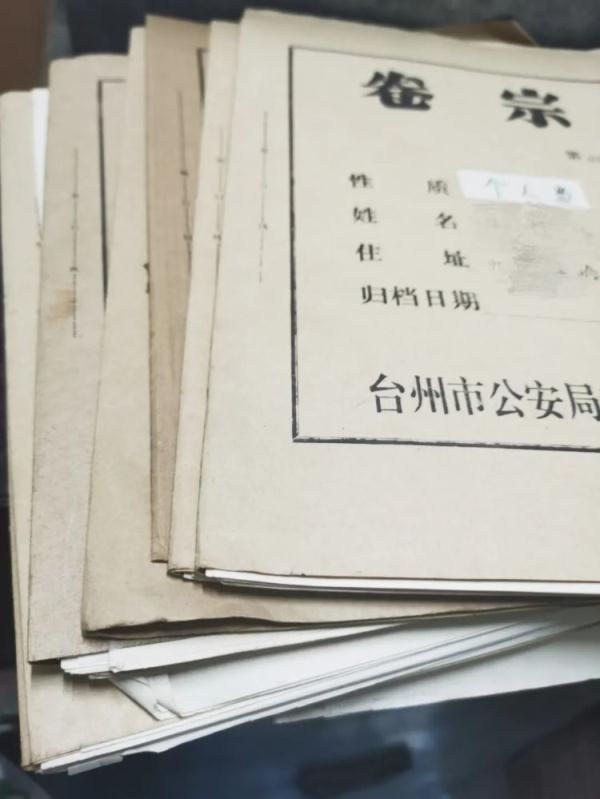 卷宗
第
性质 个人
姓名
住址
归档日期
台州市公安局